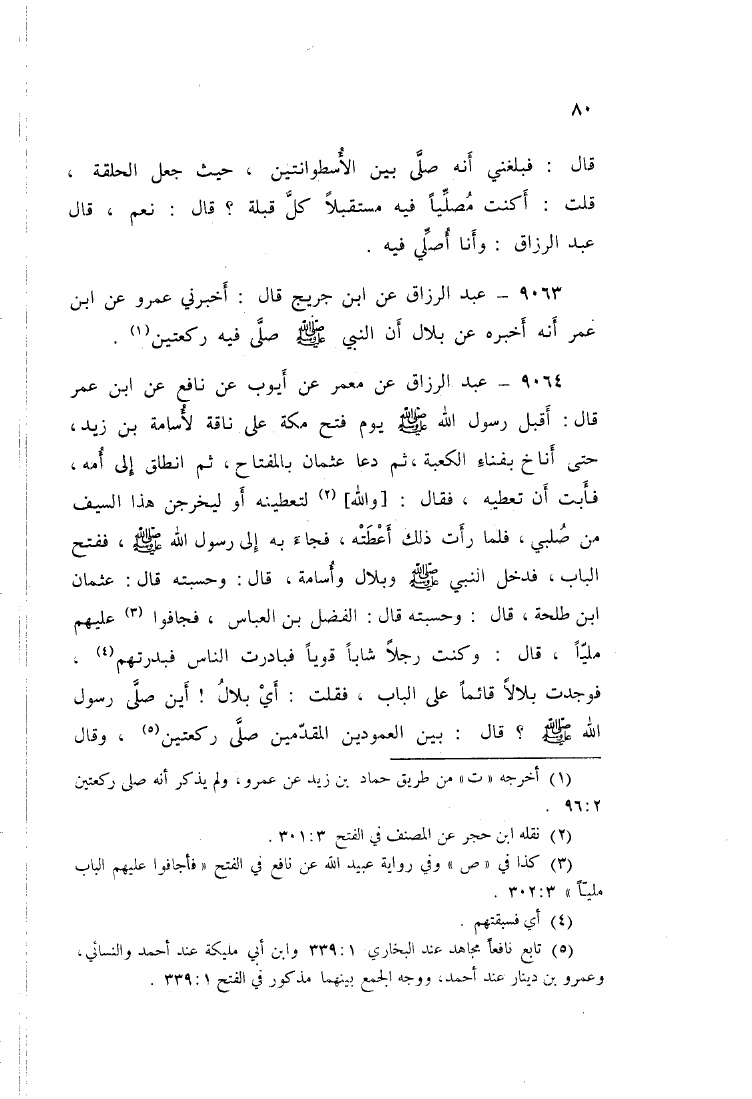 ٨٠
قال : فبلغني أنه صلَّى بين الأُسطوانتين ، حيث جعل الحلقة ،
قلت : أكنت مُصلِّياً فيه مستقبلاً كلَّ قبلة ؟ قال : نعم ، قال
عبد الرزاق : وأَنا أُصلِّي فيه .
٩٠٦٣ – عبد الرزاق عن ابن جريج قال : أَخبرني عمرو عن ابن
عمر أَنه أَخبره عن بلال أَن النبي ﷺ صلَّى فيه ركعتين(١) .
٩٠٦٤ – عبد الرزاق عن معمر عن أَيوب عن نافع عن ابن عمر
قال : أَقبل رسول الله ﷺ يوم فتح مكة على ناقة لأُسامة بن زيد ،
حتى أَناخ بفناءِ الكعبة ، ثم دعا عثمان بالمفتاح ، ثم انطلق إلى أُمه ،
فأَبت أَن تعطيه ، فقال : [والله] (٢) لتعطينه أو ليخرجن هذا السيف
من صُلبي ، فلما رأَت ذلك أَعْطَتْه ، فجاءَ به إلى رسول الله ﷺ ، ففتح
الباب ، فدخل النبي ﷺ وبلال وأُسامة ، قال : وحسبته قال : عثمان
ابن طلحة ، قال : وحسبته قال : الفضل بن العباس ، فجافوا (٣) عليهم
مليّاً ، قال : وكنت رجلاً شاباً قوياً فبادرت الناس فبدرتهم(٤) ،
فوجدت بلالاً قائماً على الباب ، فقلت : أَيْ بلالُ ! أَين صلَّى رسول
الله ﷺ ؟ قال : بين العمودين المقدّمين صلَّى ركعتين(٥) ، وقال
(١) أخرجه «ت» من طريق حماد بن زيد عن عمرو ، ولم يذكر أنه صلى ركعتين
٩٦:٢ .
(٢) نقله ابن حجر عن المصنف في الفتح ٣٠١:٣ .
(٣) كذا في «ص» وفي رواية عبيد الله عن نافع في الفتح «فأجافوا عليهم الباب
مليّاً» ٣٠٢:٣ .
(٤) أي فسبقتهم .
(٥) تابع نافعاً مجاهد عند البخاري ٣٣٩:١ وابن أبي مليكة عند أحمد والنسائي ،
وعمرو بن دينار عند أحمد ، ووجه الجمع بينهما مذكور في الفتح ٣٣٩:١ .